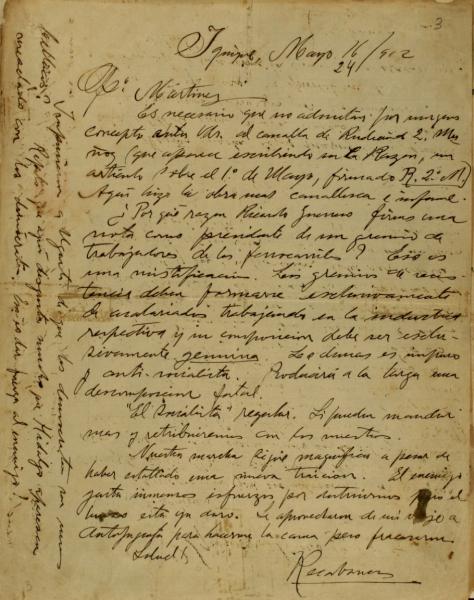 3
Iquique, Mayo 16/912
24
Co. Martinez
Es necesario que no admitan por ningun
concepto entre Uds. al canalla de Rudecindo 2º. Mu
ñoz (que aparece escribiendo en La Razon, un
artículo sobre el 1º de Mayo, firmado R. 2º. M.)
Aquí hizo la obra mas canallesca e infame.
¿Por qué razon Ricardo Guerrero firma una
nota como presidente de un gremio de
trabajadores de los ferrocarriles? Eso es
una mistificacion. Los gremios de resis-
tencia deben formarse esclusivamente
de asalariados trabajando en la industria
respectiva y su composicion debe ser esclu-
sivamente genuina. Lo demas es impuro
y anti-socialista. Producirá a la larga una
descomposicion fatal.
"El Socialista" regular. Si pueden mandar
mas y retribuiremos con los nuestros.
Nuestra marcha sigue magnífica a pesar de
haber estallado una nueva traicion. El enemigo
gasta inmensos esfuerzos por destruirnos pero el
hueso está ya duro. Se aprovecharon de mi viaje a
Antofagasta para hacerme la cama pero fracasaron
Salud!
Recabarren
Impresiona y disgusta de que los demócratas no sean
Repito que aquí disgusta mucho ya Hidalgo aparezca
mezclado con los demócratas